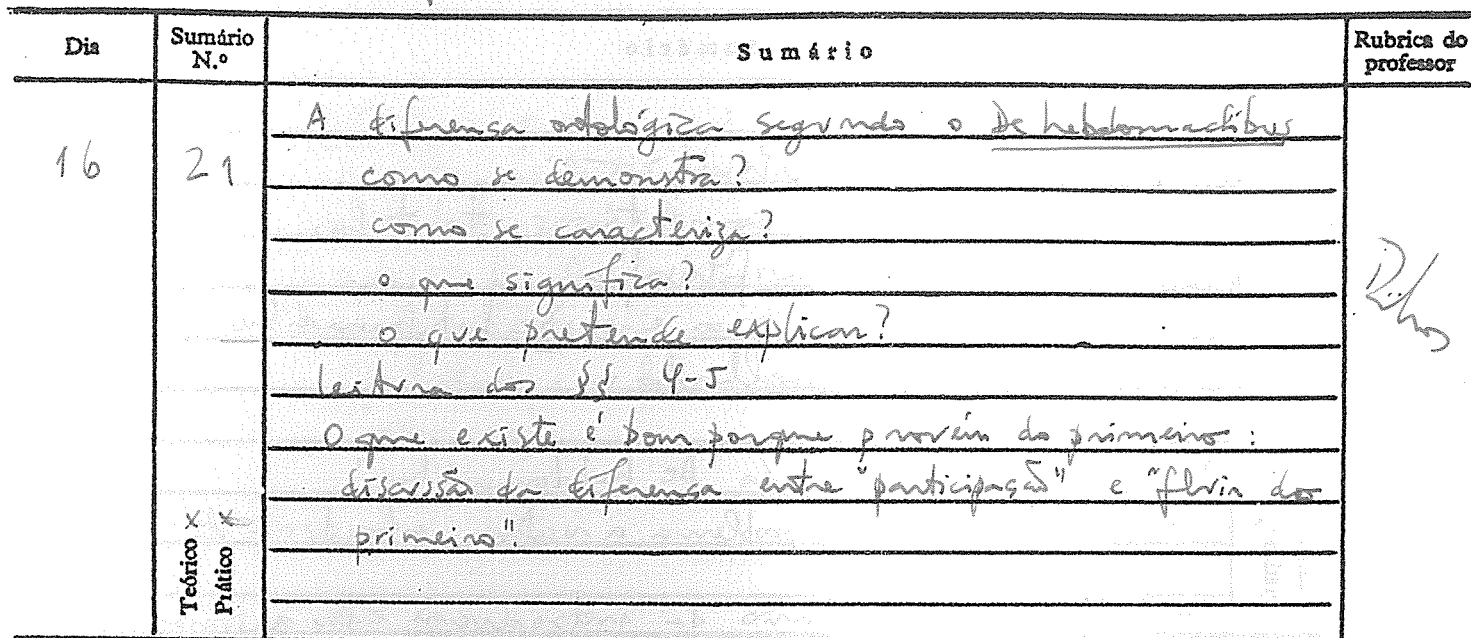 Dia Sumário N.º Sumário Rubrica do professor
A diferença ontológica segundo o De hebdomadibus
16 21 como se demonstra?
como se caracteriza?
o que significa?
o que pretende explicar?
leitura dos §§ 4-5
O que existe é bom porque provém do primeiro:
discussão da diferença entre "participação" e "fluir do
primeiro".
Teórico x
Prático x